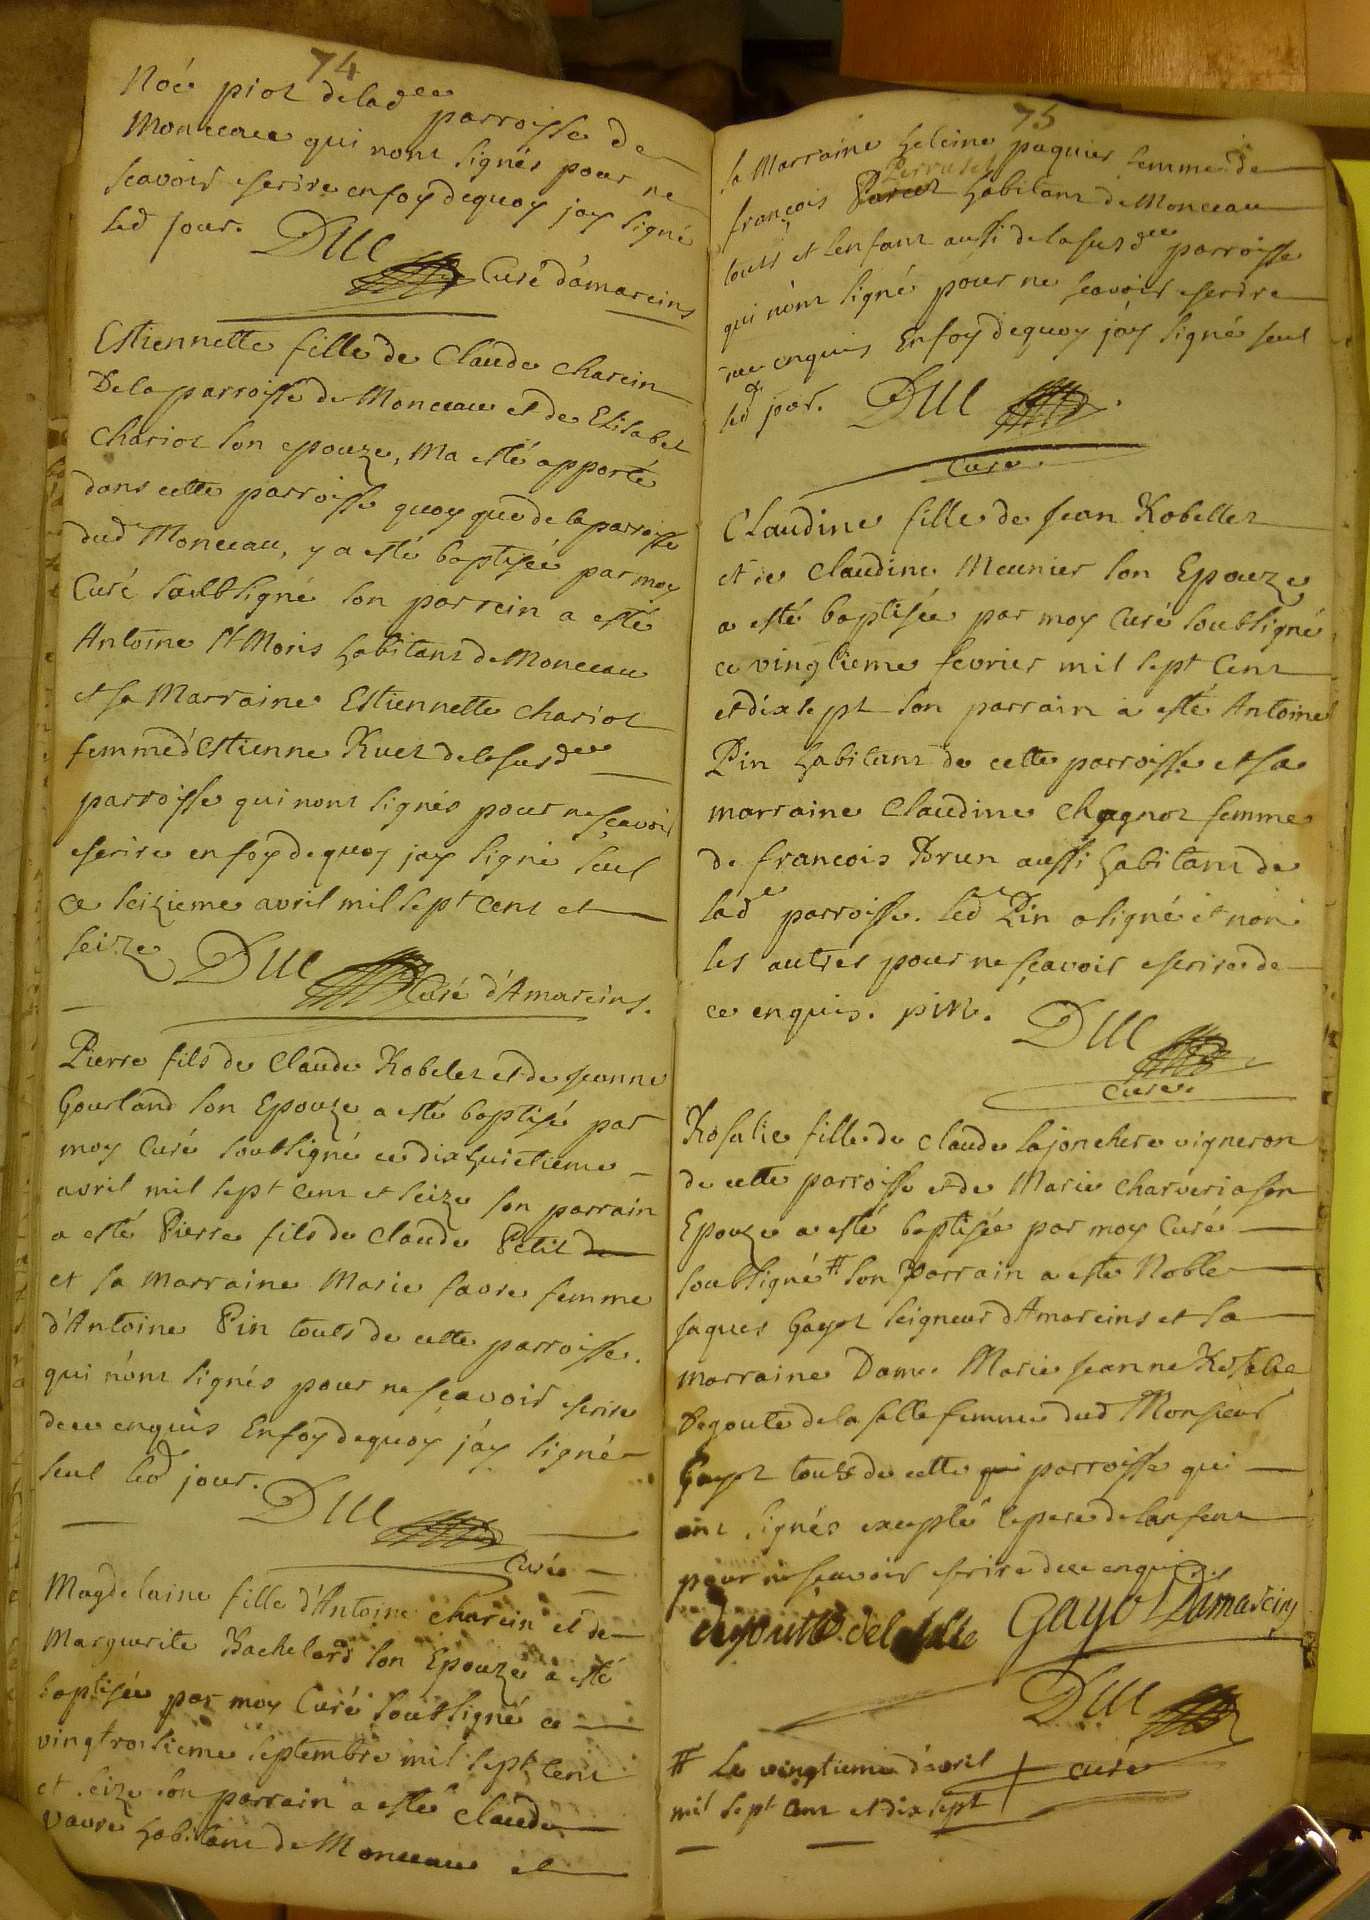 74
Noé piot de lad.ee parroisse de
Monceau qui n'ont signés pour ne
scavoir escrire en foy de quoy jay signé
led jour. Duc
Curé d'amareins
Estiennette fille de Claude Charein
De la parroisse de Monceau et de Elisabet
Chariot son epouze, Ma esté apporté
dans cette parroisse quoy que de la parroisse
dud Monceau, y a esté baptisée par moy
Curé soubsigné son parrein a esté
Antoine St Moris habitant de Monceau
et sa Marraine Estiennette Chariot
femme d'Estienne Ruet de la susd.ee
parroisse qui n'ont signés pour ne sçavoir
escrire en foy de quoy jay signé seul
ce seizieme avril mil sept cent et
seize Duc
Curé d'Amareins.
Pierre fils de Claude Robelet et de jeanne
Gourland son Epouze a esté baptisé par
moy Curé soubsigné ce dixhuictieme
avril mil sept cent et seize son parrain
a esté Pierre fils de Claude Petit de
et sa marraine Marie favre femme
d'Antoine Pin touts de cette parroisse.
qui n'ont signés pour ne sçavoir escrire
de ce enquis En foy de quoy j'ay signé
seul led jour. Duc
Curé
Magdelaine fille d'Antoine Charein et de
Marguerite Bachelard son Epouze a esté
baptisée par moy Curé soubsigné ce
vingtroisieme septembre mil sept cent
et seize son parrain a esté Claude
vavre habitant de Monceau et
75
sa Marraine heleine paquier femme de
Perruset
françois habitant de Monceau
touts et l'enfant aussi de la susd.ee parroisse
qui n'ont signé pour ne scavoir escrire
de ce enquis En foy de quoy j'ay signé seul
led jour. Duc
Curé.
Claudine fille de Jean Robellet
et de Claudine Meunier son Epouze
a esté baptisée par moy Curé soubsigné
ce vingtieme fevrier mil sept Cent
et dixsept son parrain a esté Antoine
Pin habitant de cette parroisse et sa
marraine Claudine Chagnot femme
de francois Brun aussi habitant de
lad.e parroisse. led Pin a signé et non
les autres pour ne sçavoir escrire de
ce enquis. pin. Duc
Curé.
Rosalie fille de Claude Lajonchere vigneron
de cette parroisse et de Marie Charveria son
Epouze a esté baptisée par moy Curé
soubsigné # son parrain a este Noble
jaques Gayot seigneur d'Amareins et sa
marraine Dame Marie jeanne Rosalie
Degoute de la salle femme dud Monsieur
Gayot touts de cette qui parroisse qui
ont signés excepté le pere de l'enfent
pour ne scavoir escrire de ce enquis.
degoutte delasalle Gayot Damareins
Duc
# Le vingtieme d'avril curé
mil sept cent et dix sept